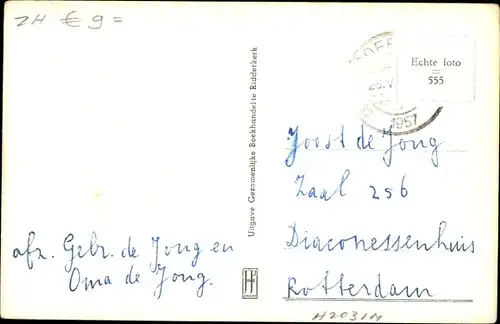 ZH € 9 =
Echte foto
=
555
1957
Joost de Jong
Zaal 256
Diaconessenhuis
Rotterdam
afz. Gebr. de Jong en
Oma de Jong.
Uitgave Gezamenlijke Boekhandels Ridderkerk
H2031M